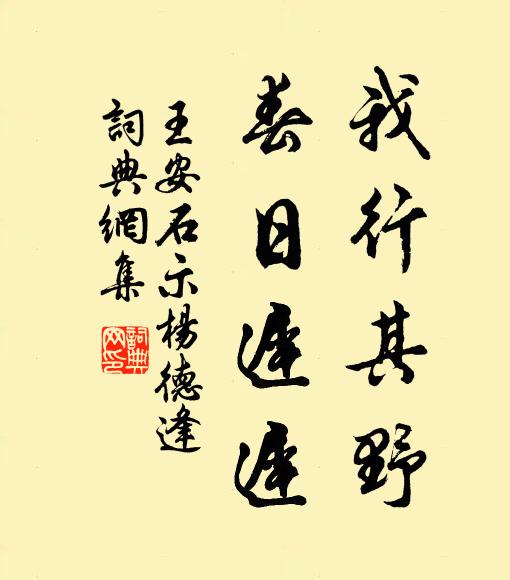 我行其野
春日遲遲
王安石示楊德逢
詞典網集
詞典網印